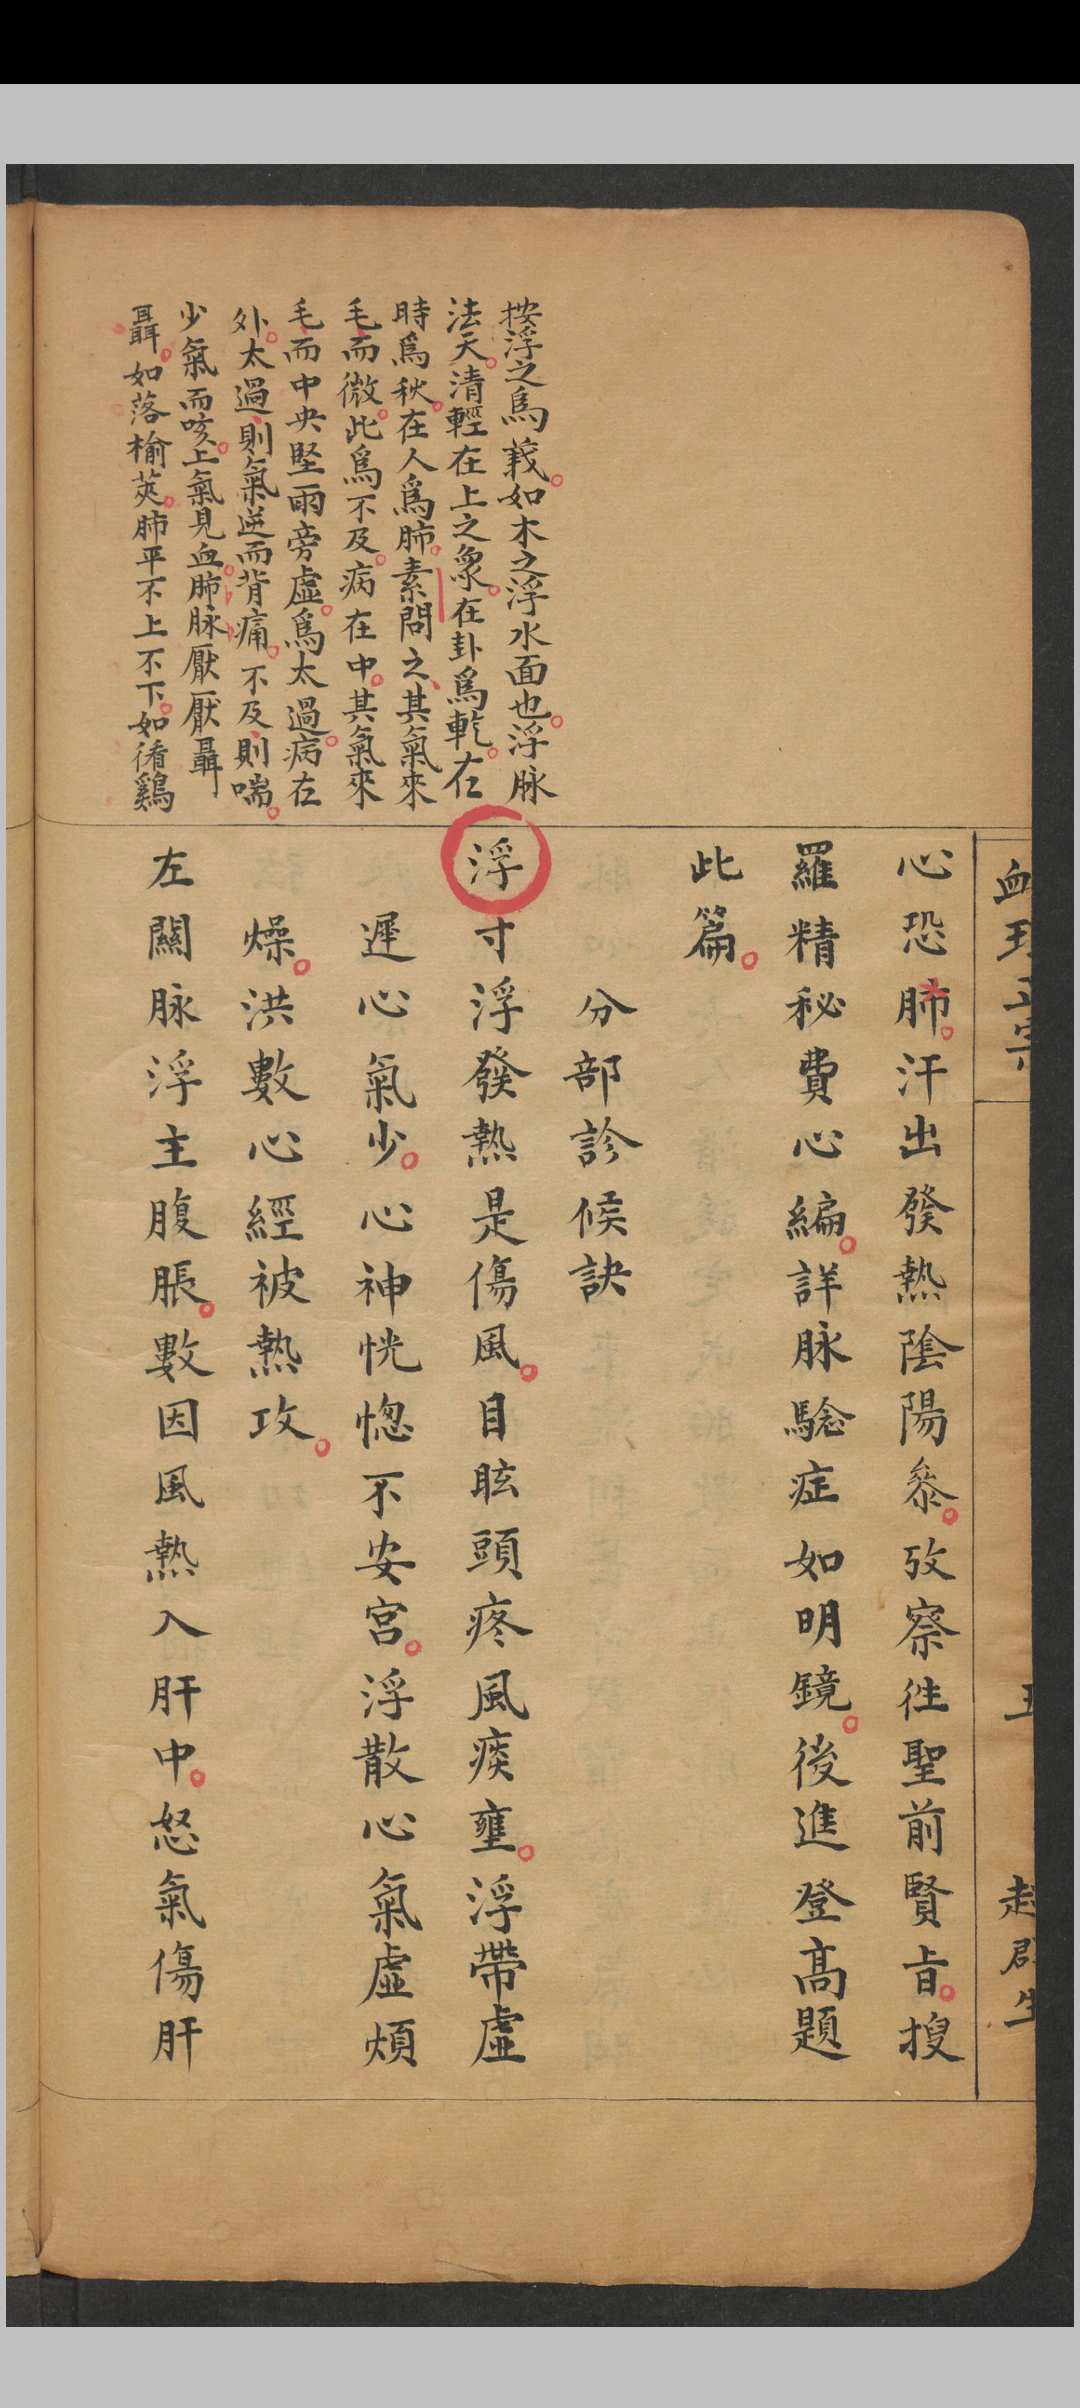 血理正宗
五
趙群生
心恐肺汗出發熱陰陽參攷察徃聖前賢旨搜
羅精秘費心編詳脉騐症如明鏡後進登高題
此篇
分部診候訣
浮寸浮發熱是傷風目眩頭疼風痰壅浮帶虛
遲心氣少心神恍惚不安宮浮散心氣虛煩
燥洪數心經被熱攻
左關脉浮主腹脹數因風熱入肝中怒氣傷肝
按浮之爲義如木之浮水面也浮脉
法天清輕在上之象在卦爲乾在
時爲秋在人爲肺素問之其氣來
毛而微此爲不及病在中其氣來
毛而中央堅兩旁虛爲太過病在
外太過則氣逆而背痛不及則喘
少氣而咳上氣見血肺脉厭厭聶
聶如落榆莢肺平不上不下如循鷄